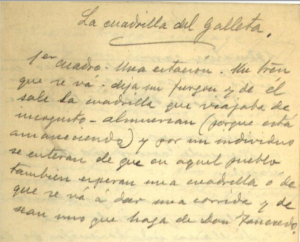 La cuadrilla del Galleta.
1er cuadro. Una estacion. Un tren
que se vá - deja un furgon y de el
sale la cuadrilla que viajaba de
incognito - almuerzan (porque está
amaneciendo) y por un individuo
se enteran de que en aquel pueblo
tambien esperan una cuadrilla o de
que se vá a dar una corrida y de
sean uno que haga de Don Tancredo.